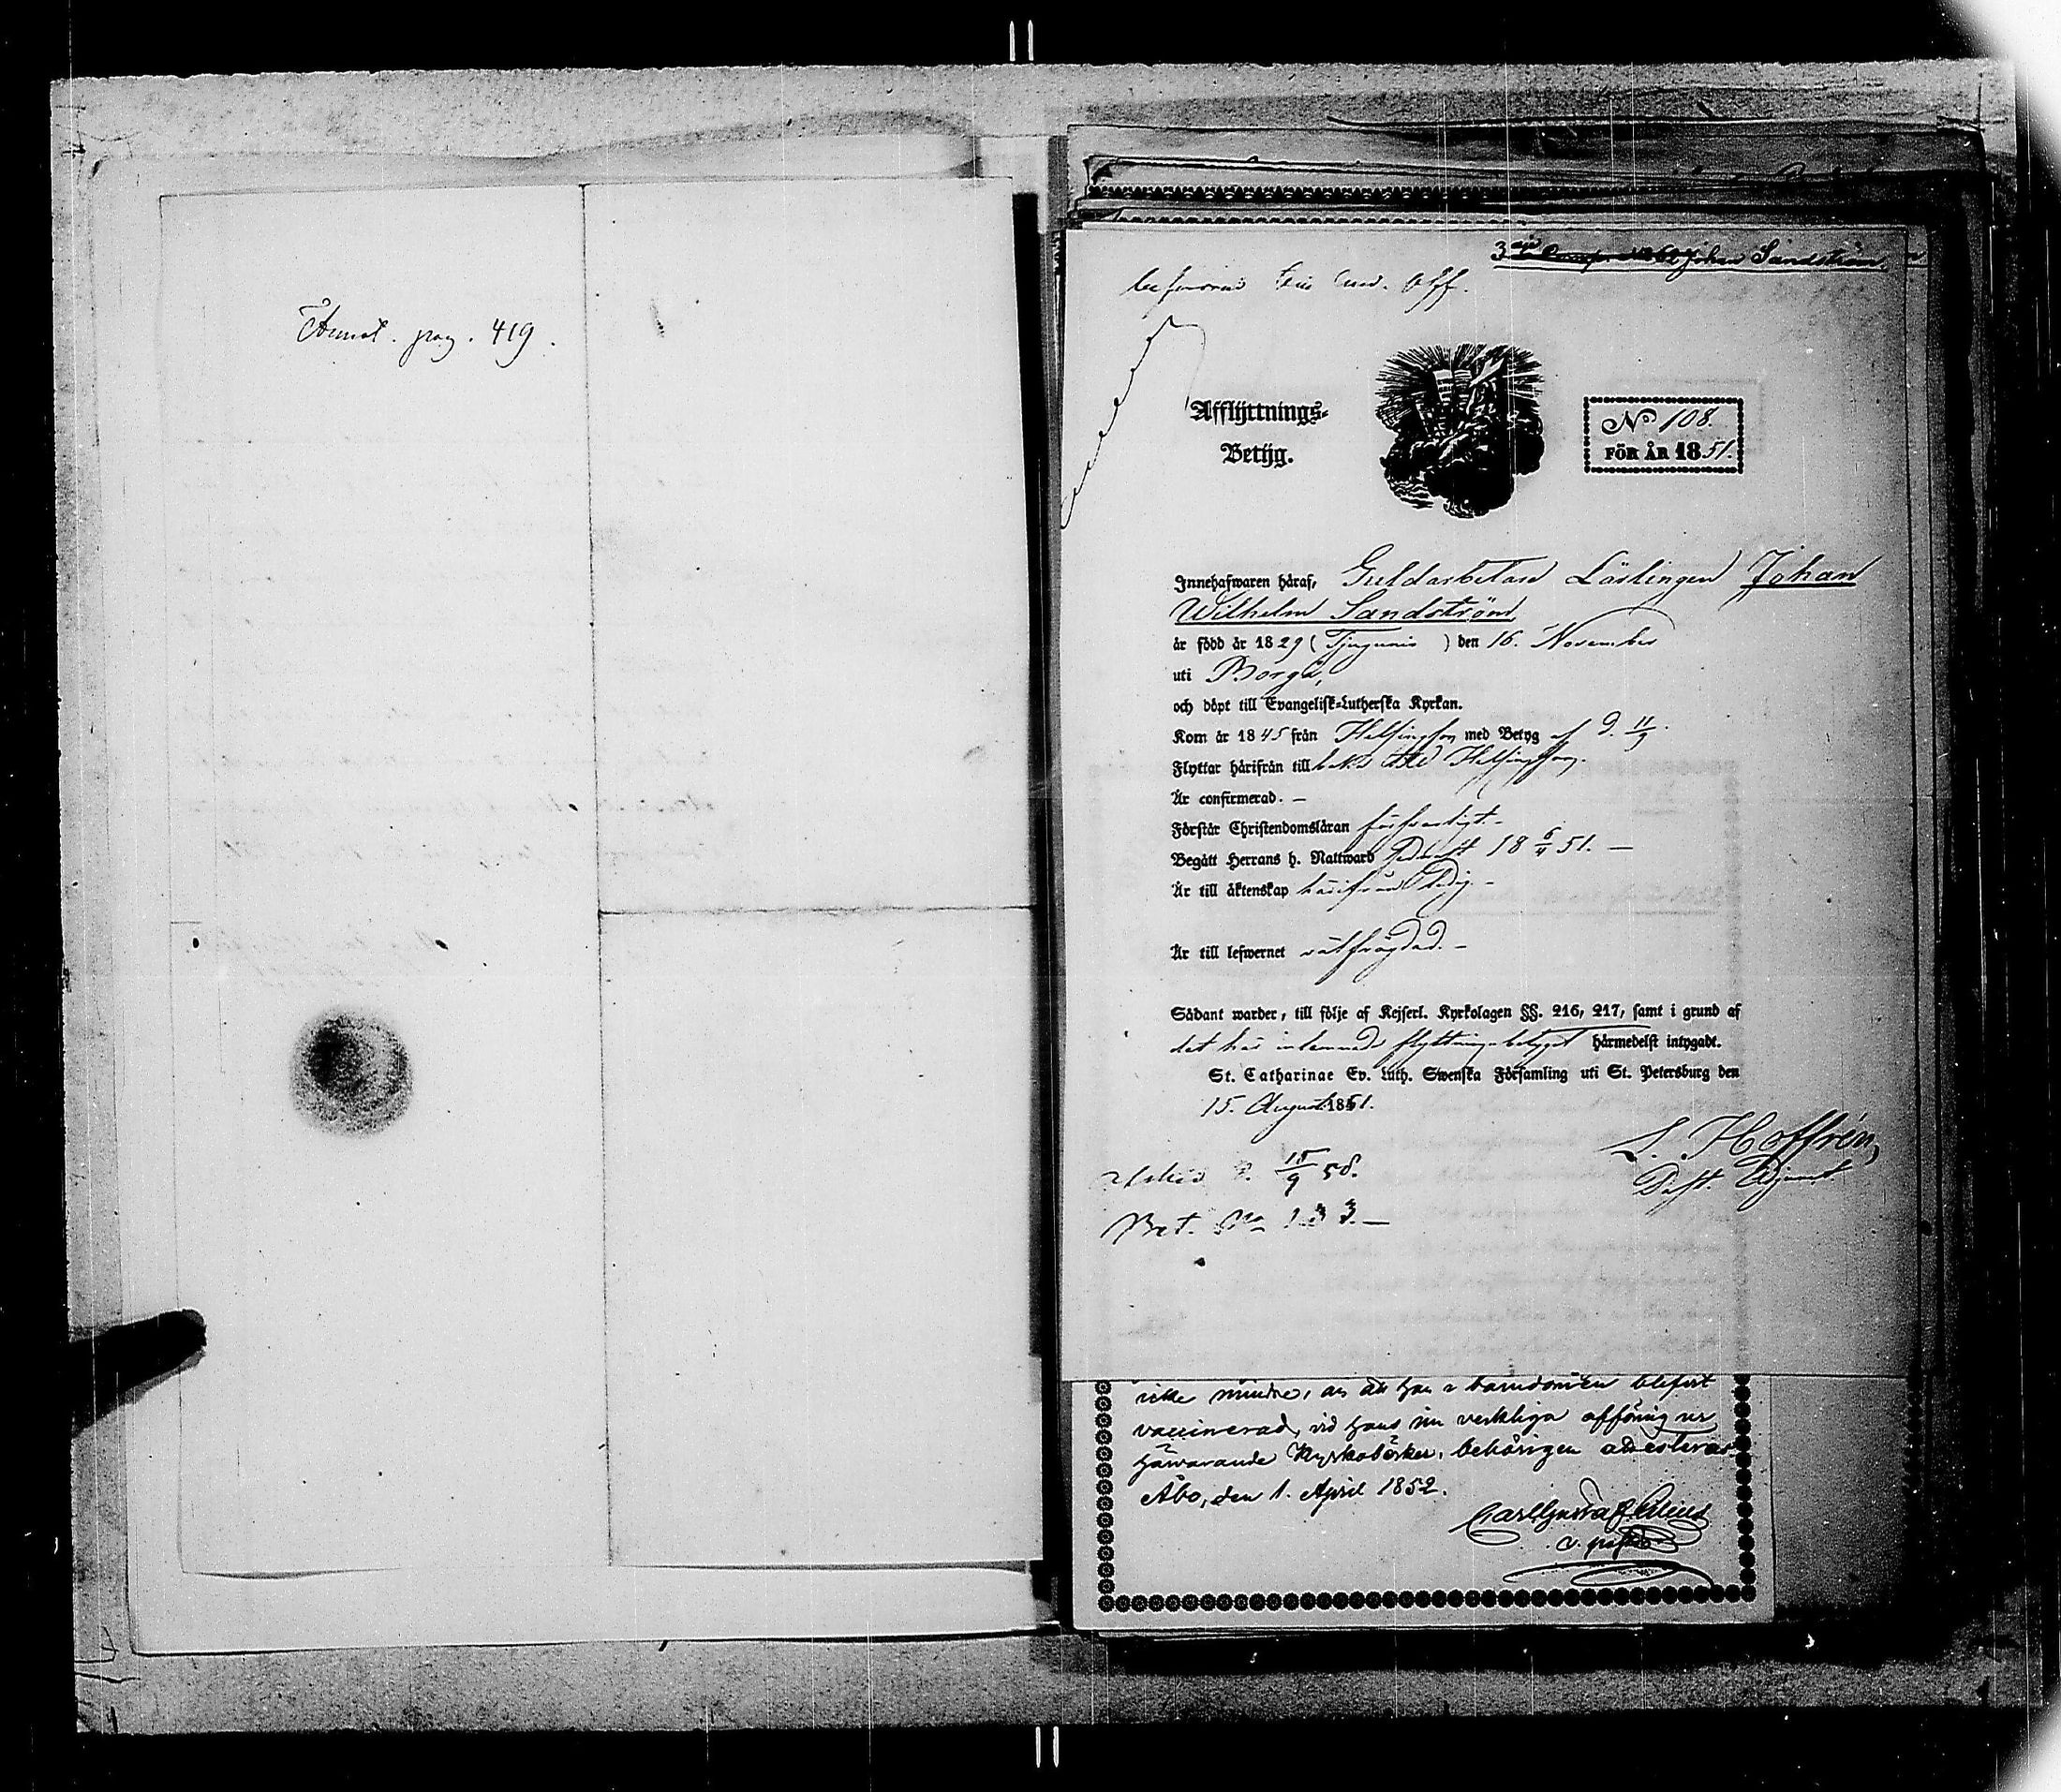 Annot. pag. 419.
3dje Johan Sandström.
Afflyttnings-
Betyg.
No 108.
FÖR ÅR 1851.
Innehafwaren häraf, Guldarbetare Lärlingen Johan
Wilhelm Sandström
är född år 1829 (Tjugunio) den 16. November
uti Borgå,
och döpt till Evangelisk-Lutherska Kyrkan.
Kom år 1845 från Helsingfors med Betyg af d. 11/9.
Flyttar härifrån tillbaka till Helsingfors.
Är confirmerad. –
Förstår Christendomsläran försvarligt. –
Begått Herrans h. Nattward sednast 18 6/4 51. –
Är till äktenskap härifrån ledig. –
Är till lefwernet välfrägdad. –
Sådant warder, till följe af Kejserl. Kyrkolagen §§. 216, 217, samt i grund af
det här inlemnade flyttningsbetyget härmedelst intygadt.
St. Catharinae Ev. Luth. Swenska Församling uti St. Petersburg den
15. August 1851.
L. Hoffrén,
Past. Adjunct.
15/9 58.
Bet. No 133. –
icke mindre, än att han i barndomen blifvit
vaccinerad, vid hans nu verkliga afföring ur
härvarande Kyrkoböcker, behörigen attesteras
Åbo, den 1. April 1852.
Carl Gustaf
v. past.